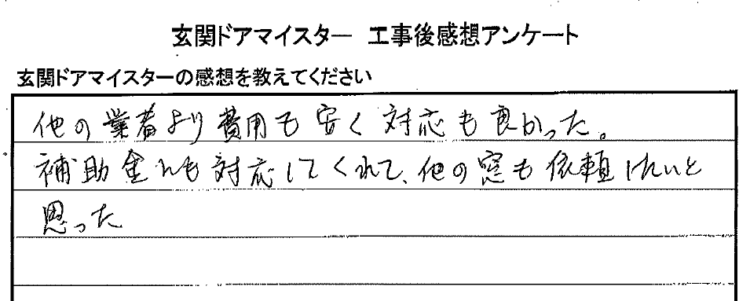 玄関ドアマイスター 工事後感想アンケート
玄関ドアマイスターの感想を教えてください
他の業者より費用も安く対応も良かった。
補助金にも対応してくれて、他の窓も依頼したいと
思った